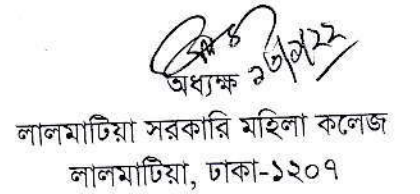 অধ্যক্ষ
লালমাটিয়া সরকারি মহিলা কলেজ
লালমাটিয়া, ঢাকা-১২০৭